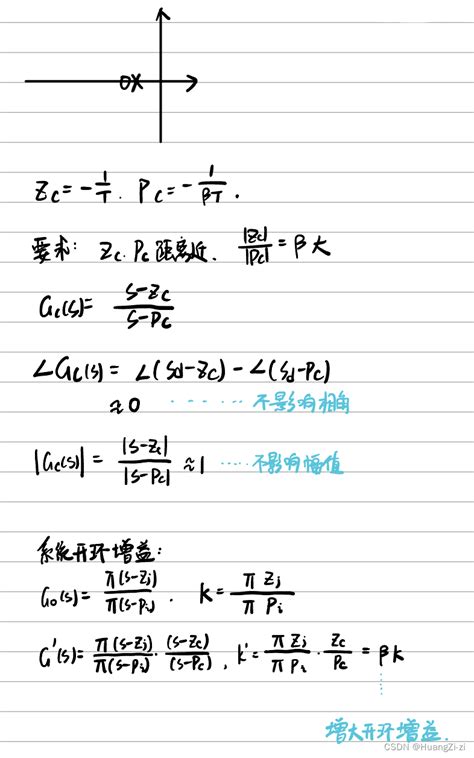 Zc = -1/T . Pc = -1/βT .
要求: Zc. Pc 距离近. |Zc|/|Pc| = β 大
Gc(s) = (s-Zc)/(s-Pc)
∠Gc(s) = ∠(sd-Zc) - ∠(sd-Pc)
≈0 ······ 不影响相角
|Gc(s)| = |s-Zc|/|s-Pc| ≈1 ···· 不影响幅值
系统开环增益:
Go(s) = π(s-Zj)/π(s-Pi) . K = πZj/πPi
G'(s) = π(s-Zj)/π(s-Pi) · (s-Zc)/(s-Pc) , K' = πZj/πPi · Zc/Pc = βK
增大开环增益.
CSDN @HuangZi-zi